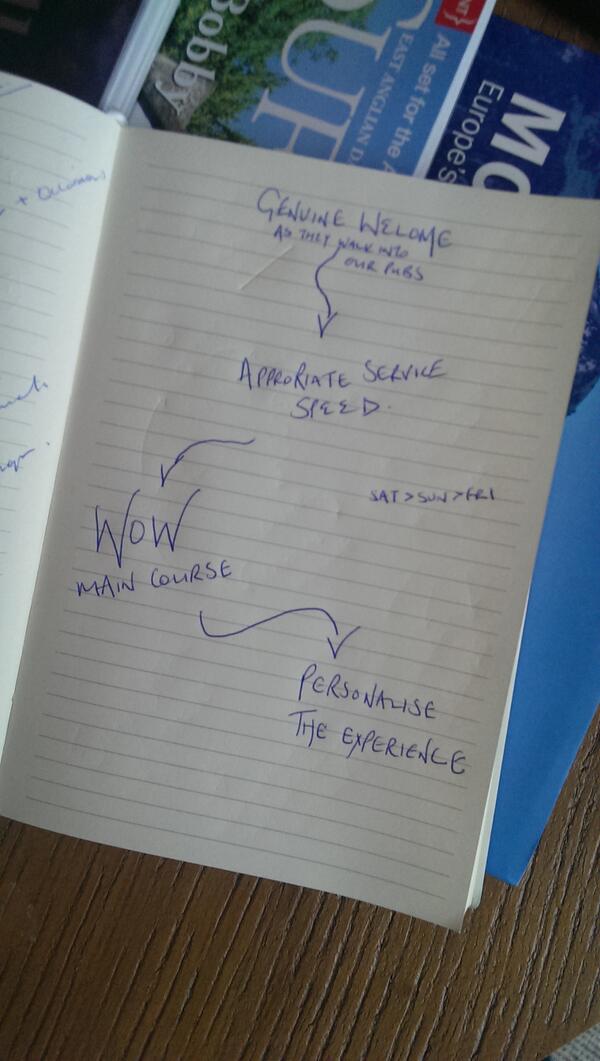 Bobby
OUR
EAST ANGLIAN D
All set for the A
MO
Europe's
+
GENUINE WELCOME
AS THEY WALK INTO
OUR PUBS
APPRORIATE SERVICE
SPEED.
SAT > SUN > FRI
WOW
MAIN COURSE
PERSONALISE
THE EXPERIENCE